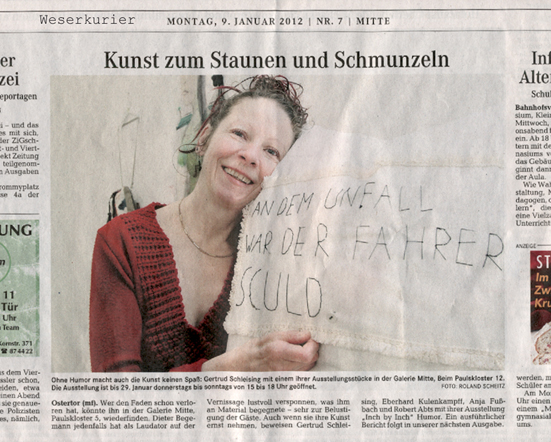 Weserkurier
MONTAG, 9. JANUAR 2012 | NR. 7 | MITTE
er
zei
eportagen
i – und das
es mit sich.
der ZiGsch-
t- und Viert-
ekt Zeitung
teilgenom-
n Ausgaben
rommyplatz
se 4a der
UNG
n
11
Tür
Uhr
Team
ornstr. 371
☎ 874422
us dem Vier-
ssler schon,
eiden, etwa
inen Abend
sie genaue-
e Polizisten
Nachwuchs.
Kunst zum Staunen und Schmunzeln
AN DEM UNFALL
WAR DER FAHRER
SCULD.
Ohne Humor macht auch die Kunst keinen Spaß: Gertrud Schleising mit einem ihrer Ausstellungsstücke in der Galerie Mitte, Beim Paulskloster 12.
Die Ausstellung ist bis 29. Januar donnerstags bis sonntags von 15 bis 18 Uhr geöffnet.
FOTO: ROLAND SCHEITZ
Ostertor (mf). Wer den Faden schon verlo-
ren hat, könnte ihn in der Galerie Mitte,
Paulskloster 5, wiederfinden. Dieter Bege-
mann jedenfalls hat als Laudator auf der
Vernissage lustvoll versponnen, was ihm
an Material begegnete – sehr zur Belusti-
gung der Gäste. Auch wenn sie ihre Kunst
ernst nehmen, beweisen Gertrud Schlei-
sing, Eberhard Kulenkampff, Anja Fuß-
bach und Robert Abts mit ihrer Ausstellung
„Inch by Inch“ Humor. Ein ausführlicher
Bericht folgt in unserer nächsten Ausgabe.
Inf
Alte
Schul
Bahnhofsv
sium, Klein
Mittwoch,
onsabend f
ein. Ab 18
tern mit de
nasiums v
das Gebäu
ginnt dann
der Aula.
Wie Wal
staltung, M
dagogen, d
lern", die
eine Vielza
Unterricht
ANZEIGE
ST
Im
Zw
Kru
werden, m
Schüler an
Am Mon
Uhr einen
dem „M
gymnasial
ums.